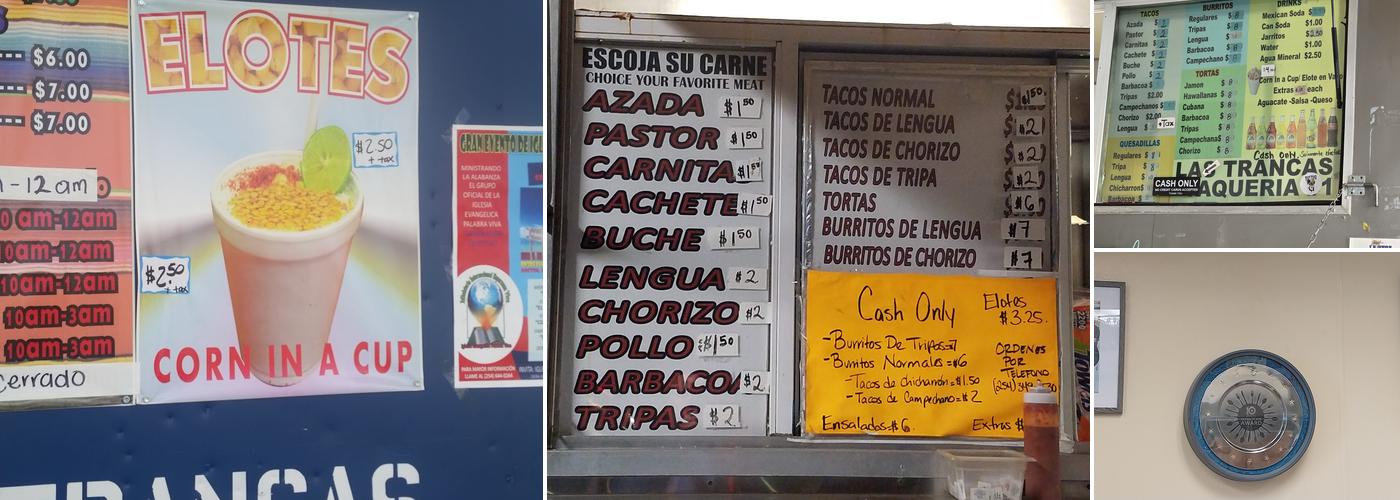 $6.00
$7.00
$7.00
-12am
10am-12am
10am-12am
10am-12am
10am-3am
10am-3am
Cerrado
ELOTES
$2.50
+ tax
$2.50
+ tax
CORN IN A CUP
GRAN EVENTO DE
MINISTRANDO
LA ALABANZA
EL GRUPO
OFICIAL DE LA
IGLESIA
EVANGELICA
PALABRA VIVA
PARA MAYOR INFORMACIÓN
TRANCAS
ESCOJA SU CARNE
CHOICE YOUR FAVORITE MEAT
AZADA $1.50
PASTOR $1.50
CARNITA $1.50
CACHETE $1.50
BUCHE $1.50
LENGUA $2
CHORIZO $2
POLLO $1.50
BARBACOA $2
TRIPAS $2
TACOS NORMAL $1.50
TACOS DE LENGUA $2
TACOS DE CHORIZO $2
TACOS DE TRIPA $2
TORTAS $6
BURRITOS DE LENGUA $7
BURRITOS DE CHORIZO $7
Cash Only
Elotes
$3.25.
-Burritos De Tripas=$7
-Burritos Normales=$6
-Tacos de chicharron=$1.50
-Tacos de Campechano=$2
Ensaladas=$6.
ORDENES
POR
TELEFONO
Extras $
TACOS
Azada $
Pastor $
Carnitas $
Cachete $
Buche $
Pollo $
Barbacoa $
Tripas $2.00
Campechanos $
Chorizo $2.00
Lengua $
+Tax
QUESADILLAS
Regulares $
Tripa $
Lengua $
Chicharron $
Barbacoa $
BURRITOS
Regulares $ 8
Tripas $ 8
Lengua $
Barbacoa $ 8
Campechano $ 8
TORTAS
Jamon $ 8
Hawaiianas $ 8
Cubana $ 8
Barbacoa $ 8
Tripas $ 8
Campechana $ 8
Chorizo $ 8
DRINKS
Mexican Soda $
Can Soda $1.00
Jarritos
Water $1.00
Agua Mineral $2.50
Corn in a Cup/ Elote en Vaso
Extras
each
Aguacate -Salsa -Queso
Cash only.
LAS TRANCAS
TAQUERIA #1
CASH ONLY
10
AWARD